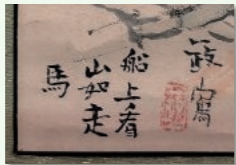 寫
船上看
山如走
馬